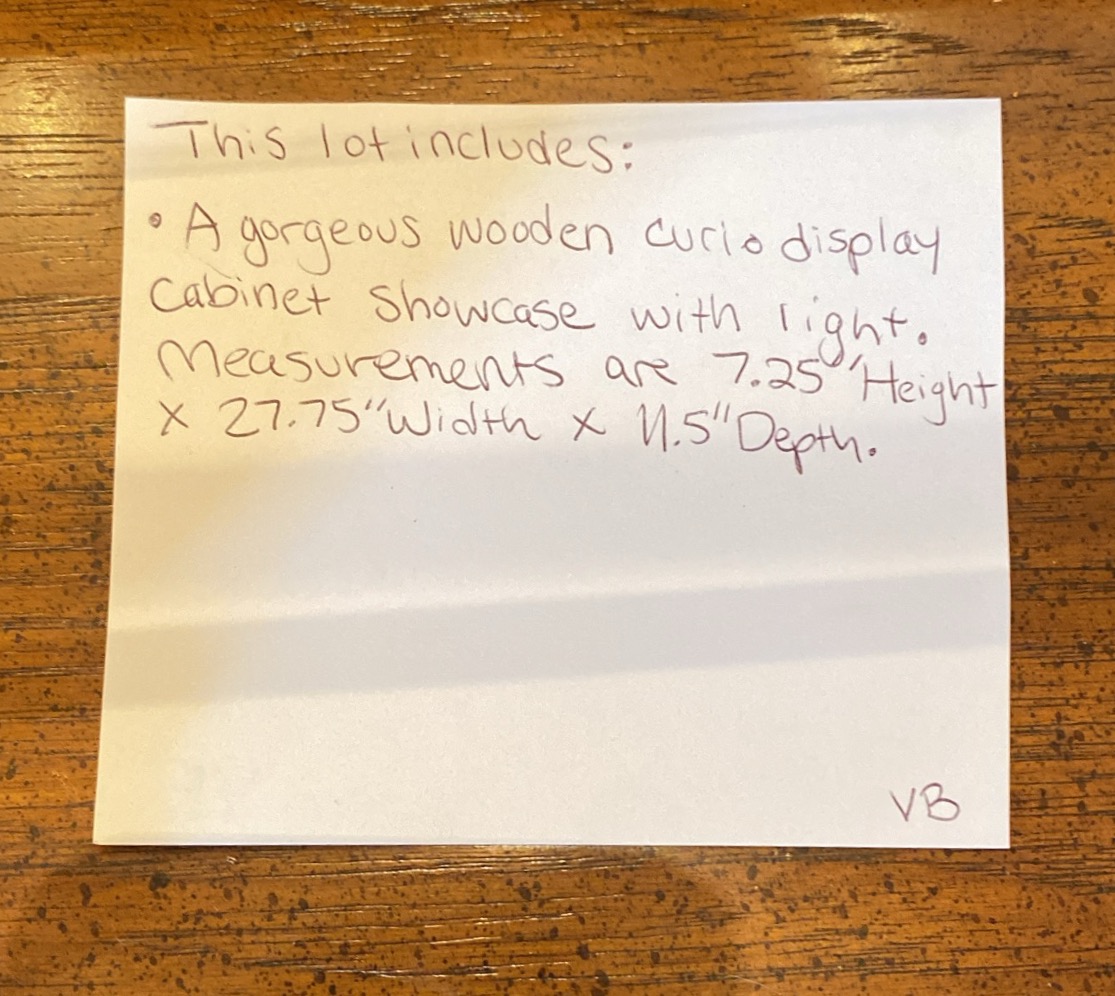 This lot includes:
• A gorgeous wooden curio display
cabinet showcase with right.
Measurements are 7.25" Height
x 27.75" Width x 11.5" Depth.
VB